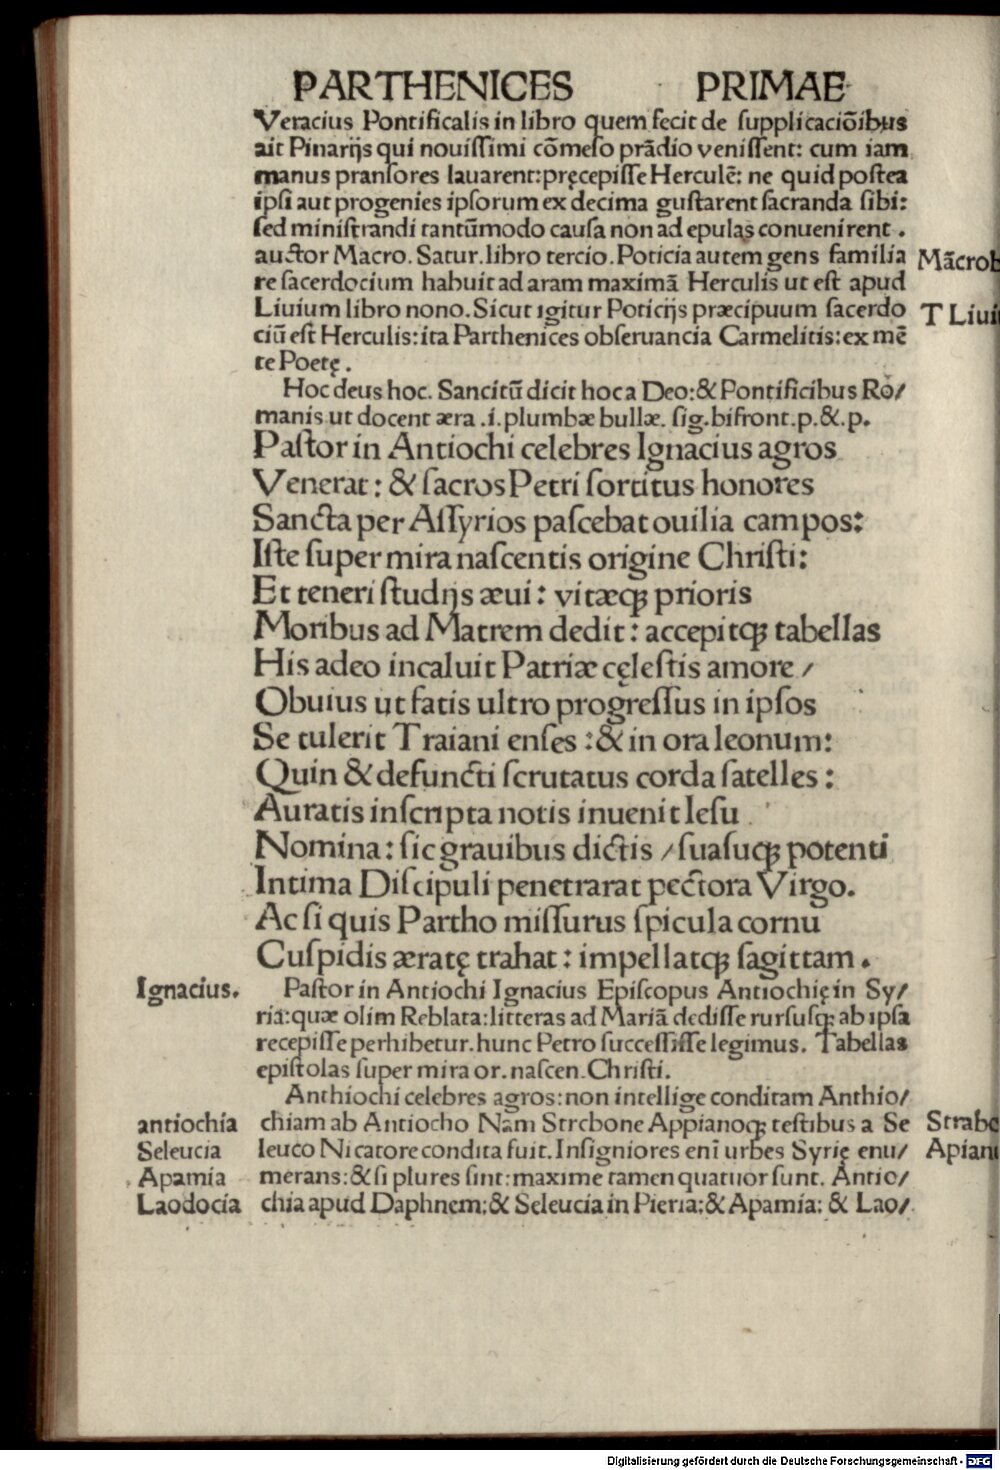 PARTHENICES PRIMAE
Veracius Pontificalis in libro quem fecit de ſupplicaciōibus
ait Pinarijs qui nouiſſimi cōmeſo prādio veniſſent: cum iam
manus pranſores lauarent: pręcepiſſe Herculē: ne quid poſtea
ipſi aut progenies ipſorum ex decima guſtarent ſacranda ſibi:
ſed miniſtrandi tantūmodo cauſa non ad epulas conuenirent.
auctor Macro. Satur. libro tercio. Poticia autem gens familia Mācrob
re ſacerdocium habuit ad aram maximā Herculis ut eſt apud
Liuium libro nono. Sicut igitur Poticijs præcipuum ſacerdo T Liui
ciū eſt Herculis: ita Parthenices obſeruancia Carmelitis: ex mē
te Poetę.
Hoc deus hoc. Sancitū dicit hoc a Deo: & Pontificibus Ro/
manis ut docent æra .i. plumbæ bullæ. ſig. bifront. p. &. p.
Paſtor in Antiochi celebres Ignacius agros
Venerat: & ſacros Petri ſortitus honores
Sancta per Aſſyrios paſcebat ouilia campos:
Iſte ſuper mira naſcentis origine Chriſti:
Et teneri ſtudijs æui: vitæqꝫ prioris
Moribus ad Matrem dedit: accepitqꝫ tabellas
His adeo incaluit Patriæ cęleſtis amore /
Obuius ut fatis ultro progreſſus in ipſos
Se tulerit Traiani enſes: & in ora leonum:
Quin & defuncti ſcrutatus corda ſatelles:
Auratis inſcripta notis inuenit Ieſu
Nomina: ſic grauibus dictis / ſuaſuqꝫ potenti
Intima Diſcipuli penetrarat pectora Virgo.
Ac ſi quis Partho miſſurus ſpicula cornu
Cuſpidis æratę trahat: impellatqꝫ ſagittam.
Ignacius. Paſtor in Antiochi Ignacius Epiſcopus Antiochię in Sy/
ria: quæ olim Reblata: litteras ad Mariā dediſſe rurſuſqꝫ ab ipſa
recepiſſe perhibetur. hunc Petro ſucceſſiſſe legimus. Tabellas
epiſtolas ſuper mira or. naſcen. Chriſti.
Anthiochi celebres agros: non intellige conditam Anthio/
antiochia chiam ab Antiocho Nām Strcbone Appianoqꝫ teſtibus a Se Strabo
Seleucia leuco Nicatore condita fuit. Inſigniores enī urbes Syrię enu/ Apian
Apamia merans: & ſi plures ſint: maxime tamen quatuor ſunt. Antio/
Laodocia chia apud Daphnem: & Seleucia in Pieria: & Apamia: & Lao/
Digitalisierung gefördert durch die Deutsche Forschungsgemeinschaft - DFG